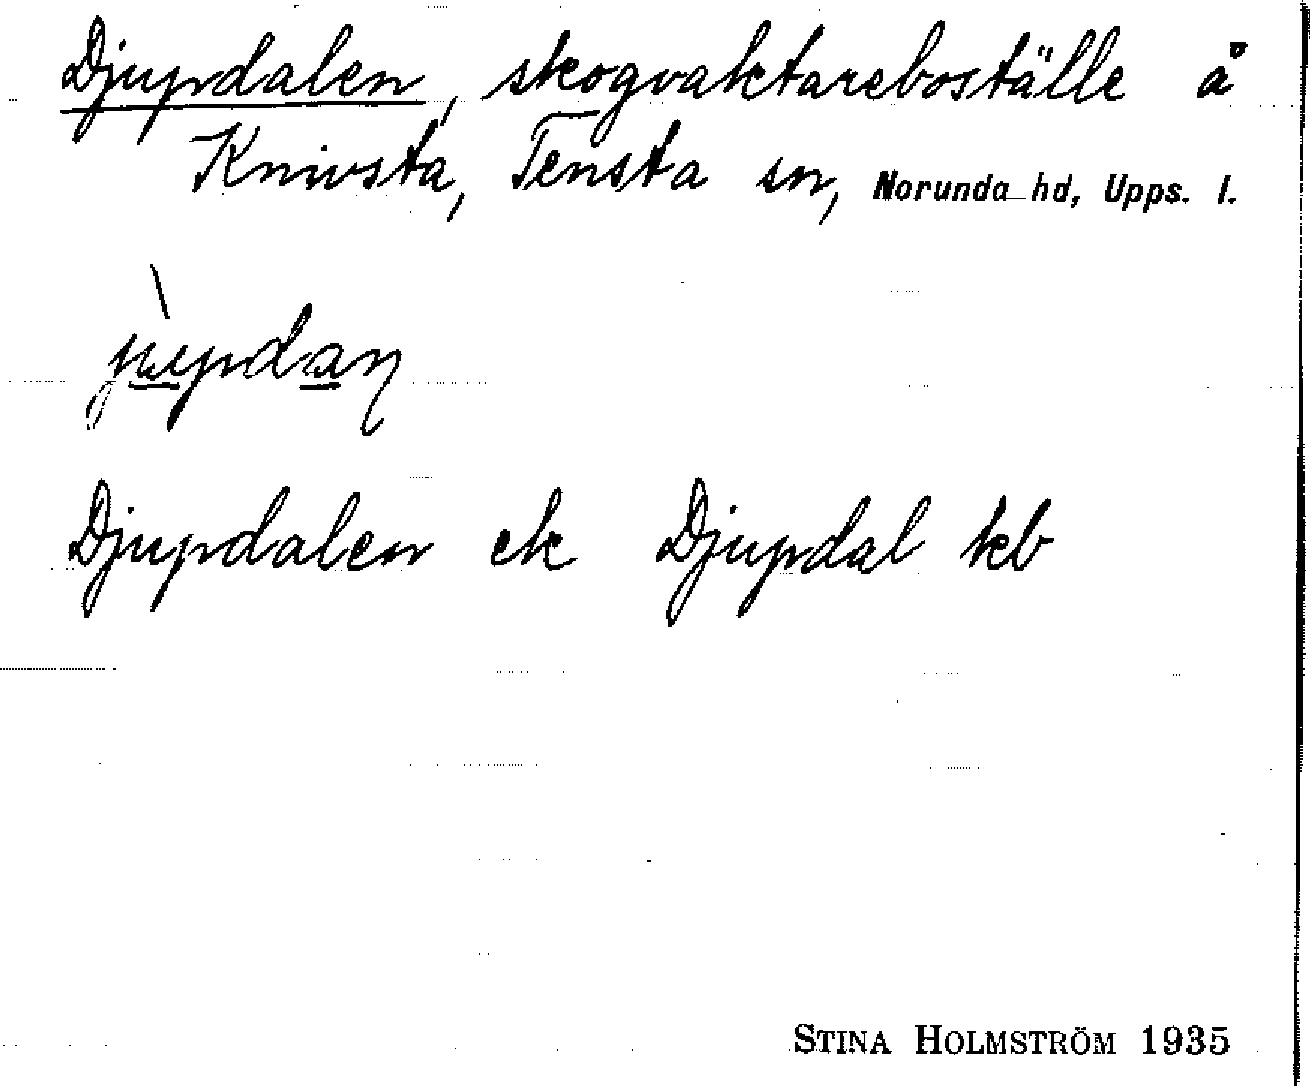 Djupdalen, skogvaktareboställe å
Knivsta, Tensta sn, Norunda hd, Upps. l.
Djupdalen ek Djupdal kb
STINA HOLMSTRÖM 1935